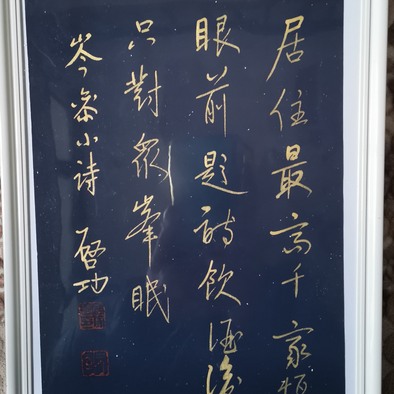 居住最高千家
眼前題詩飲酒後
只對衆峯眠
岑參小詩
啓功